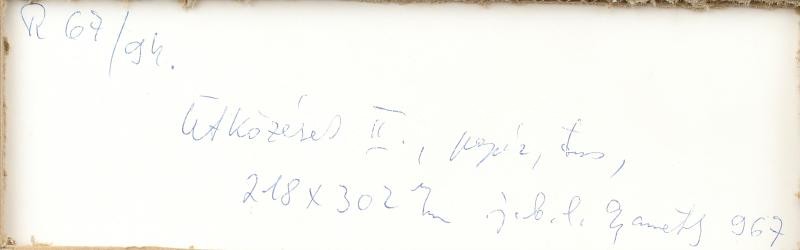 R 67/94.
Ütközések II., papír, tus,
218 x 302 mm j.b.l. 967